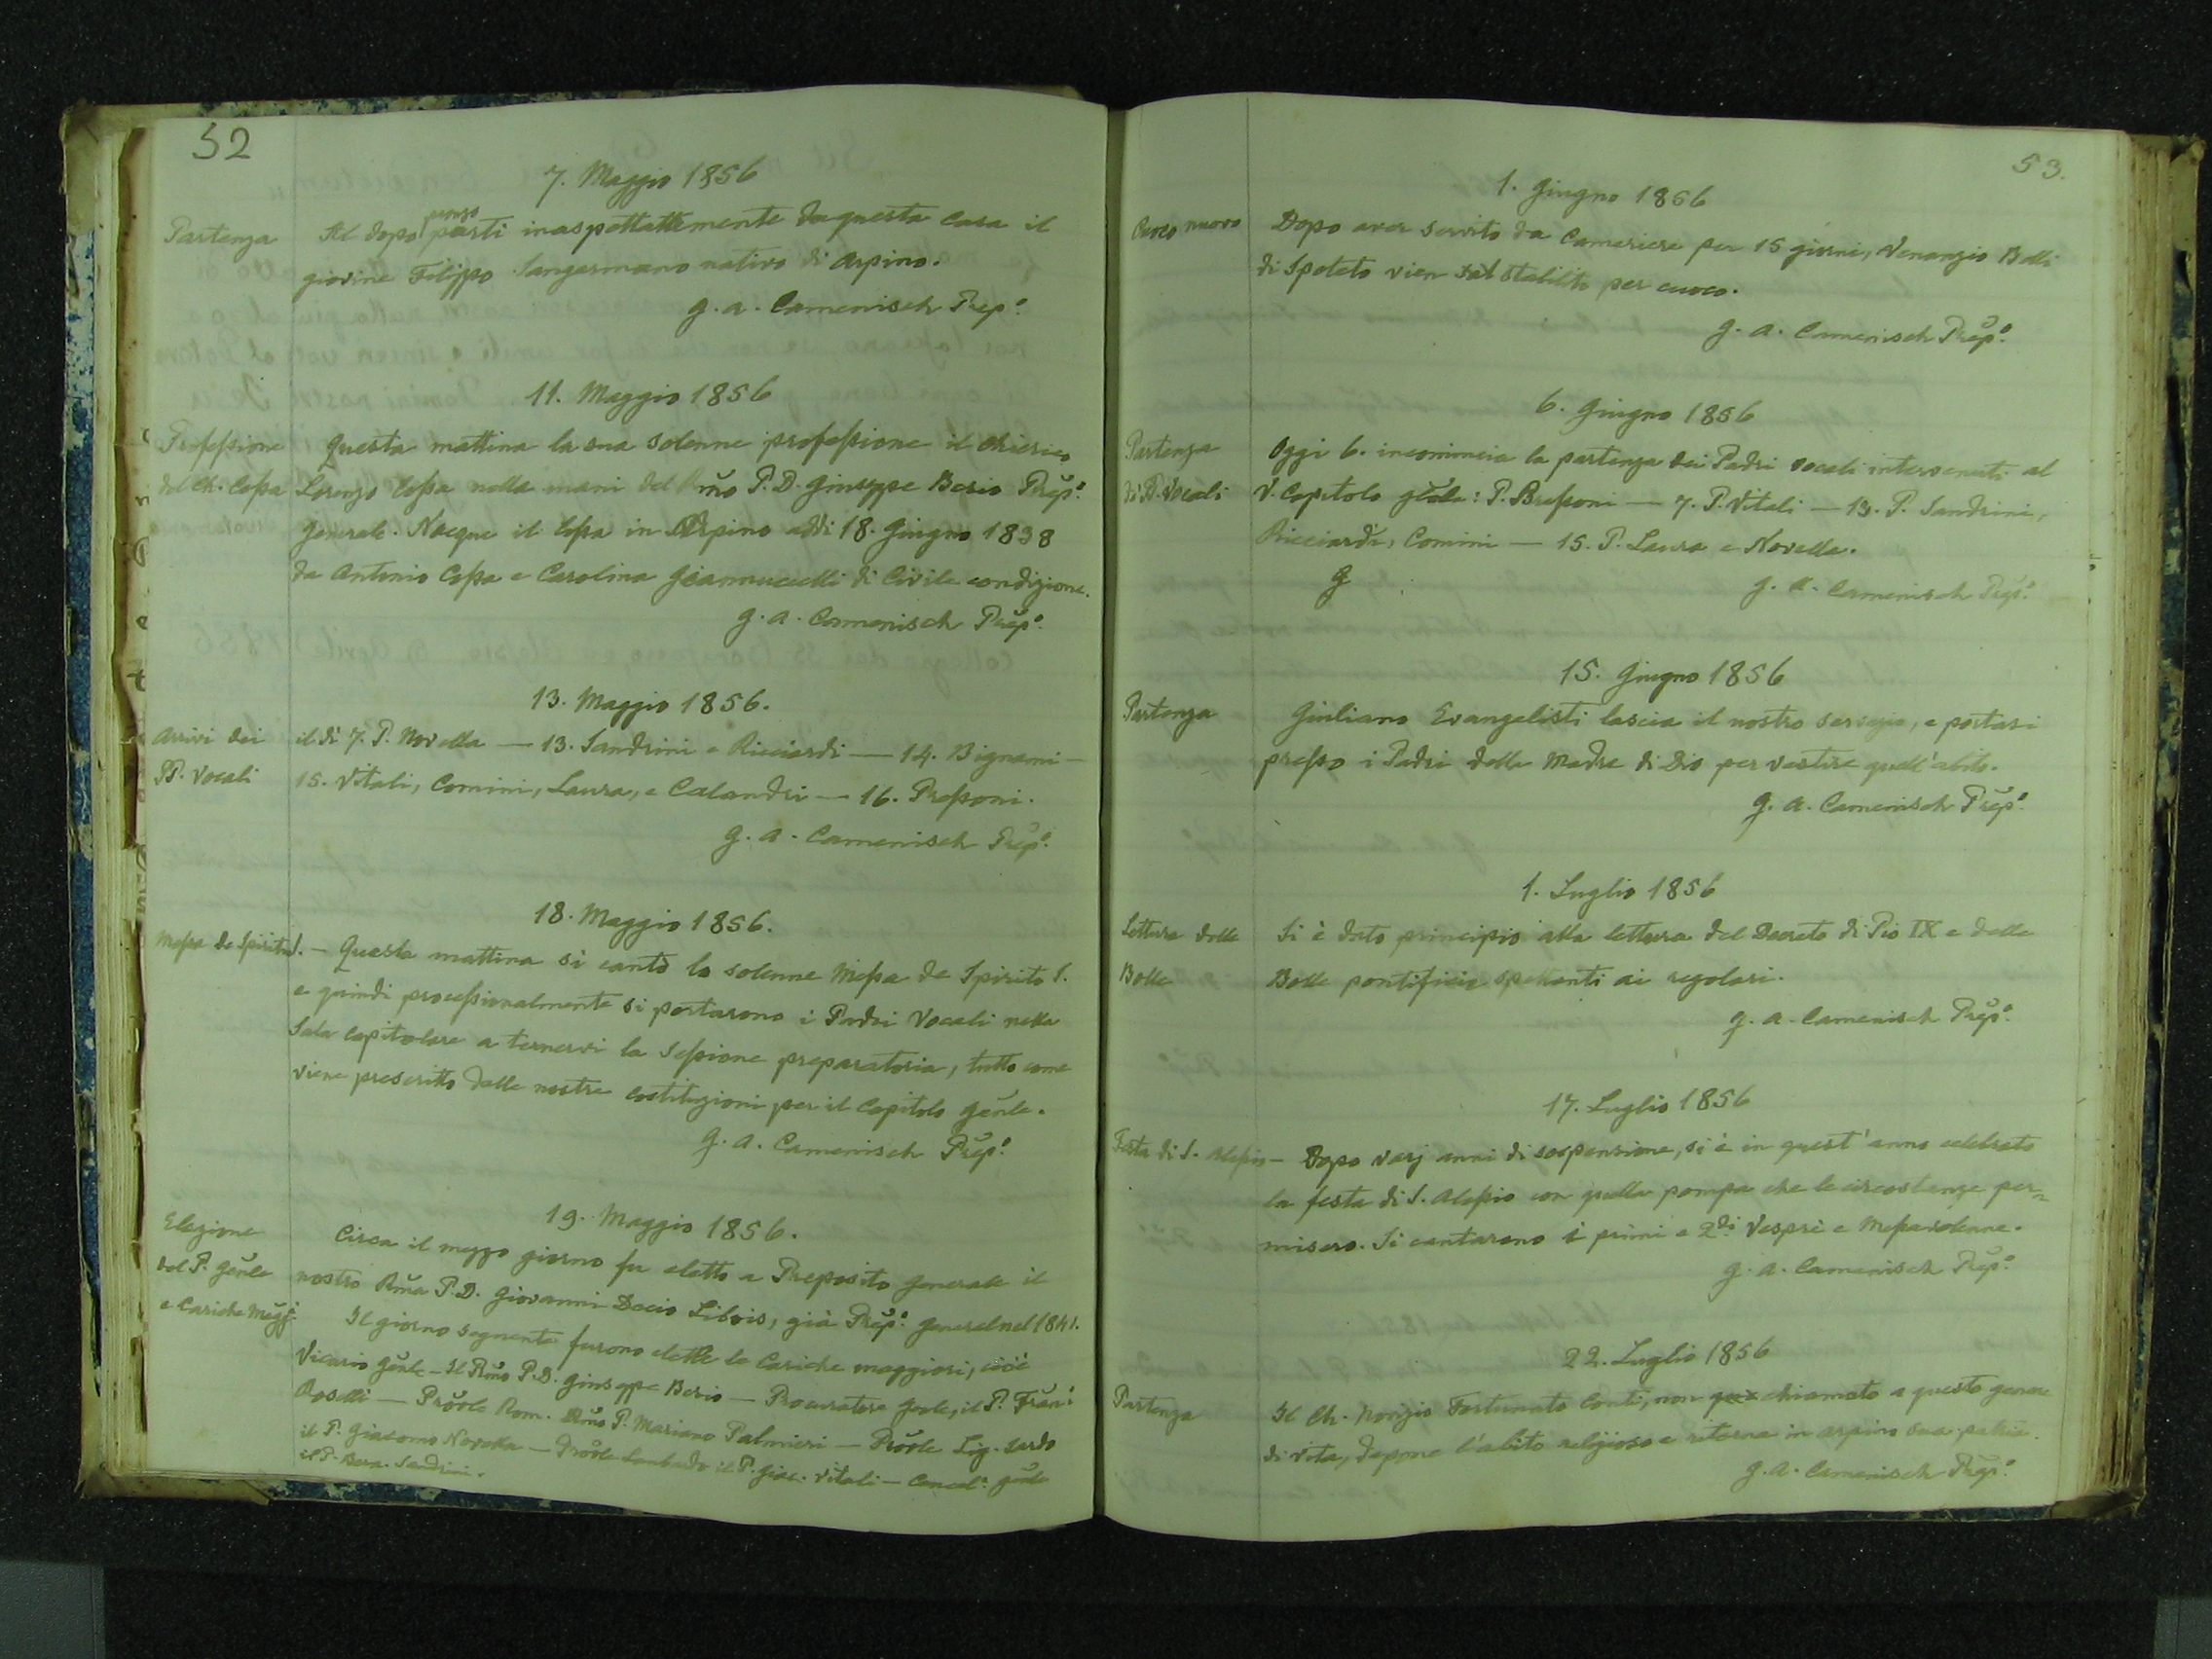 52
7. Maggio 1856
Partenza
Al dopo pranzo partì inaspettattemente da questa Casa il
giovine Filippo Sangermano nativo di Arpino.
G. A. Camenisch Prep.o
11. Maggio 1856
Professione
del Ch. Cossa
Questa mattina la sua solenne professione il chierico
Lorenzo Cossa nelle mani del Rmo P. D. Giuseppe Besio Prep.o
Generale. Nacque il Cossa in Arpino addì 18. Giugno 1838
da Antonio Cossa e Carolina Giannuccelli di Civile condizione.
G. A. Camenisch Prep.o
13. Maggio 1856.
Arrivi dei
PP. Vocali
il dì 7. P. Novella — 13. Sandrini e Ricciardi — 14. Bignami —
15. Vitali, Comini, Laura, e Calandri — 16. Pressoni.
G. A. Camenisch Prep.o
18. Maggio 1856.
Messa de Spiritu S. —
Questa mattina si cantò la solenne Messa de Spirito S.
e quindi processionalmente si portarono i Padri Vocali nella
Sala capitolare a tenervi la sessione preparatoria, tutto come
viene prescritto dalle nostre costituzioni per il Capitolo genle.
G. A. Camenisch Prep.o
19. Maggio 1856.
Elezione
del P. Genle
e Cariche Magg.i
Circa il mezzo giorno fu eletto a Preposito Generale il
nostro Rmo P. D. Giovanni Decio Libois, già Prep.o general nel 1841.
Il giorno seguente furono elette le Cariche maggiori, cioè
Vicario Genle — Il Rmo P. D. Giuseppe Besio — Procuratore Genle, il P. Fran.
Roselli — Provle Rom. Rmo P. Mariano Palmieri — Provle Lig. sardo
il P. Giacomo Novella — Provle Lombardo il P. Giac. Vitali — Cancel. Genle
il P. Sandrini.
53.
1. Giugno 1856
Cuoco nuovo
Dopo aver servito da Cameriere per 15 giorni, Venanzio Balli
di Spoleto vien stabilito per cuoco.
G. A. Camenisch Prep.o
6. Giugno 1856
Partenza
di PP. Vocali
Oggi 6. incomincia la partenza dei Padri vocali intervenuti al
V. Capitolo gnle: P. Bressoni — 7. P. Vitali — 13. P. Sandrini,
Ricciardi, Comini — 15. P. Laura e Novella.
G
G. A. Camenisch Prep.o
15. Giugno 1856
Partenza
Giuliano Evangelisti lascia il nostro servigio, e portasi
presso i Padri della Madre di Dio per vestire quell'abito.
G. A. Camenisch Prep.o
1. Luglio 1856
Lettura delle
Bolle
Si è dato principio alla lettura del Decreto di Pio IX e delle
Bolle pontificie spettanti ai regolari.
G. A. Camenisch Prep.o
17. Luglio 1856
Festa di S. Alessio —
Dopo varj anni di sospensione, si è in quest'anno celebrata
la festa di S. Alessio con quella pompa che le circostanze per=
misero. Si cantarono i primi e 2.di Vespri e Messa solenne.
G. A. Camenisch Prep.o
22. Luglio 1856
Partenza
Il Ch. Nonzio Fortunato Conti, non chiamato a questo genere
di vita, depone l'abito religioso e ritorna in Arpino sua patria.
G. A. Camenisch Prep.o